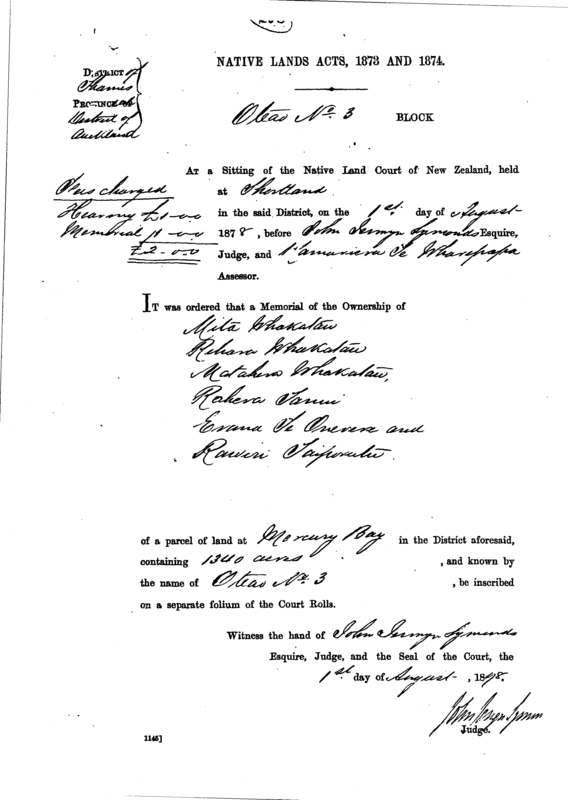 NATIVE LANDS ACTS, 1873 AND 1874.
DISTRICT of
Thames
PROVINCE OF
District of
Auckland
Oteao No. 3 BLOCK
AT a Sitting of the Native Land Court of New Zealand, held
at Shortland
in the said District, on the 1st. day of August
1878, before John Jermyn Symonds Esquire,
Judge, and Te Wharepapa
Assessor.
Fees charged
Hearing £1-0-0
Memorial 1-0-0
£2-0-0
IT was ordered that a Memorial of the Ownership of
Mita Whakatau
Rihara Whakatau
Matahera Whakatau,
Rahera Tanui
Erana Te and
Rawiri
of a parcel of land at Mercury Bay in the District aforesaid,
containing 1340 acres , and known by
the name of Oteao No. 3 , be inscribed
on a separate folium of the Court Rolls.
Witness the hand of John Jermyn Symonds
Esquire, Judge, and the Seal of the Court, the
1st day of August , 1878.
John Jermyn Symonds
Judge.
1145]